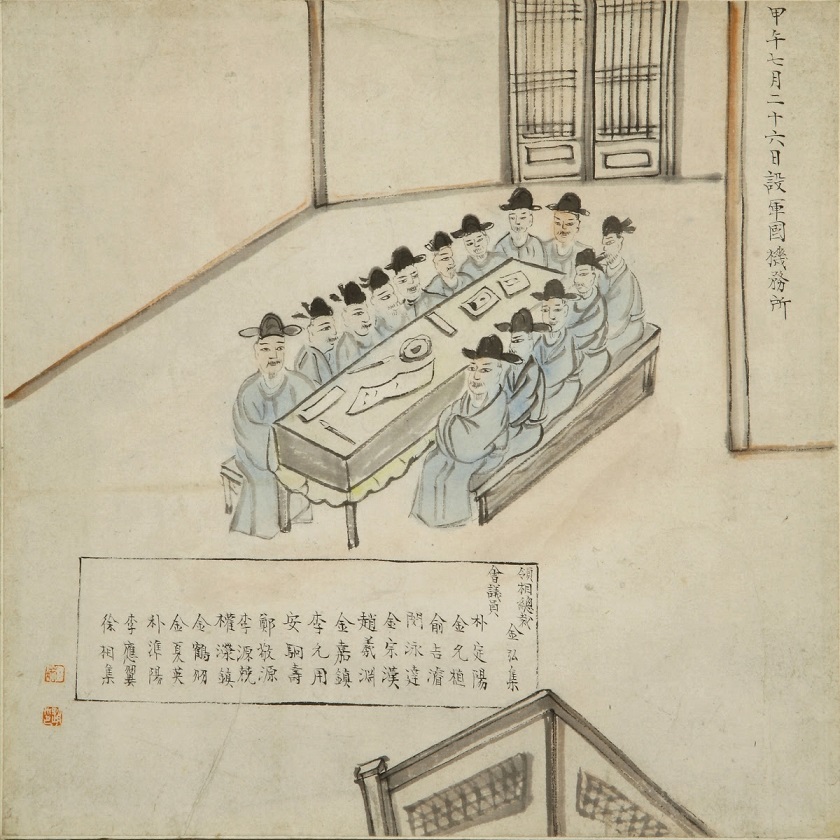 甲午七月二十六日設軍國機務所
領相總裁 金弘集
會議員
朴定陽
金允植
兪吉濬
閔泳達
金宗漢
趙羲淵
金嘉鎭
李允用
安駉壽
鄭敬源
李源兢
權瀅鎭
金鶴羽
金夏英
朴準陽
李應翼
徐相集